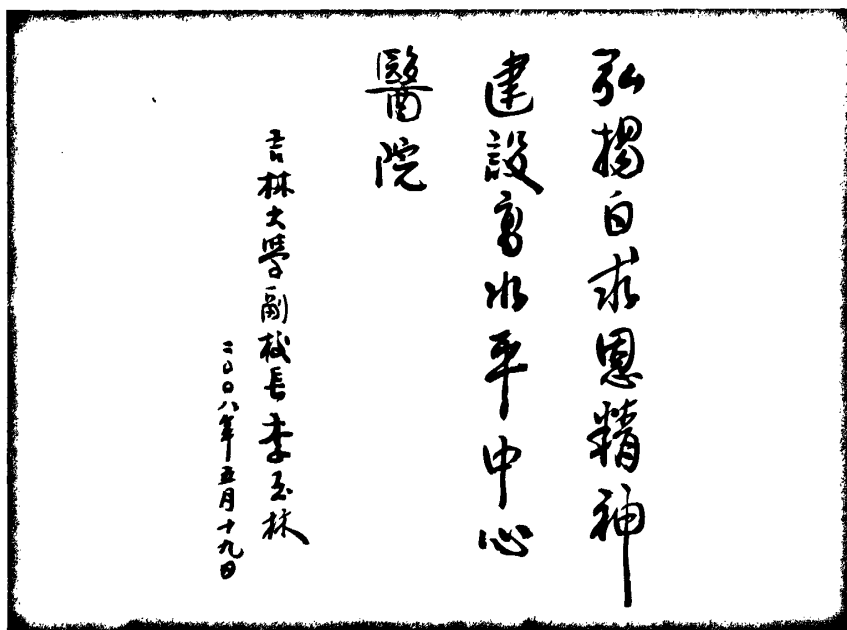 弘揚白求恩精神
建設高水平中心
醫院
吉林大學副校長李玉林
二〇〇八年五月十九日